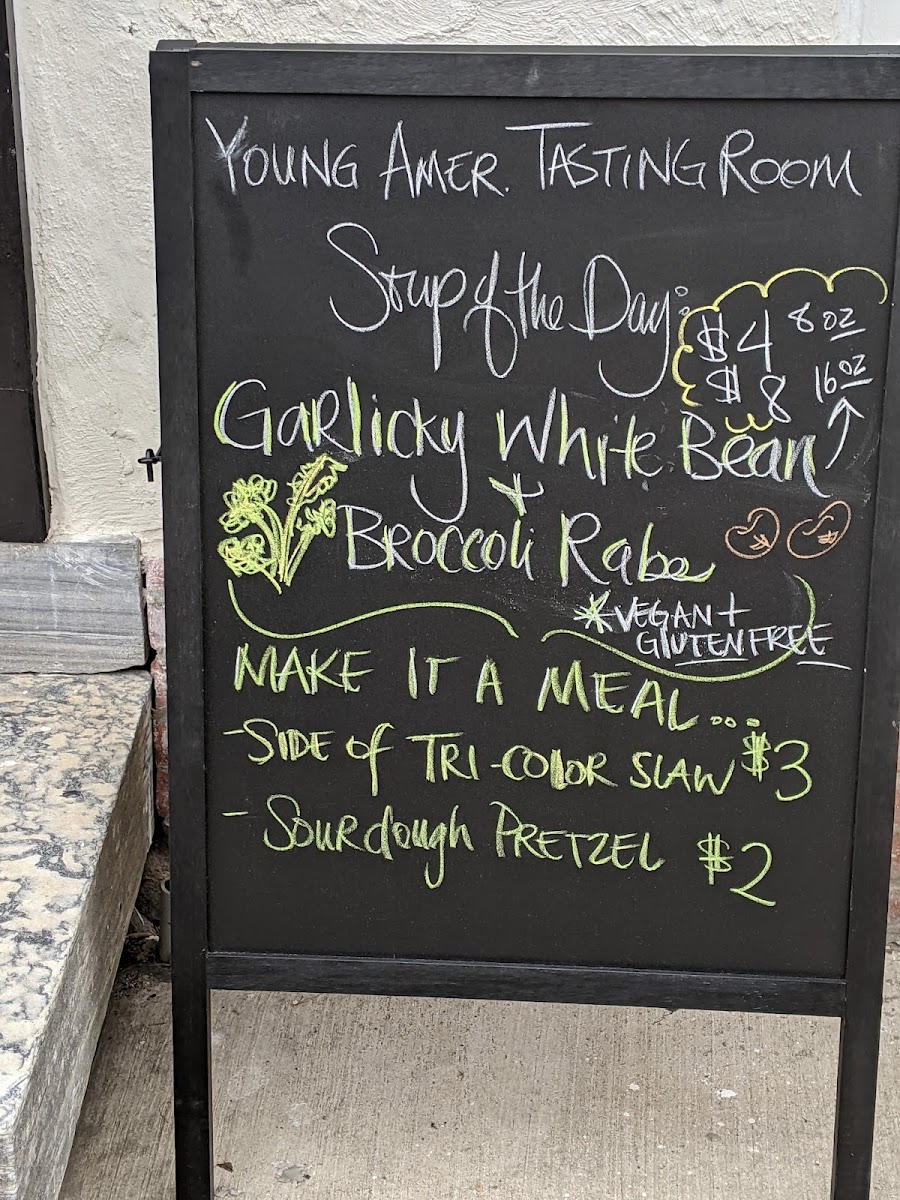 YOUNG AMER. TASTING ROOM
Soup of the Day:
$4 8 oz
$8 16 oz
GARLicky White Bean
+
BROCCOLi Rabe
*VEGAN +
GLUTEN FREE
MAKE IT A MEAL...
- SIDE OF TRI-COLOR SLAW $3
- Sourdough PRETZEL $2